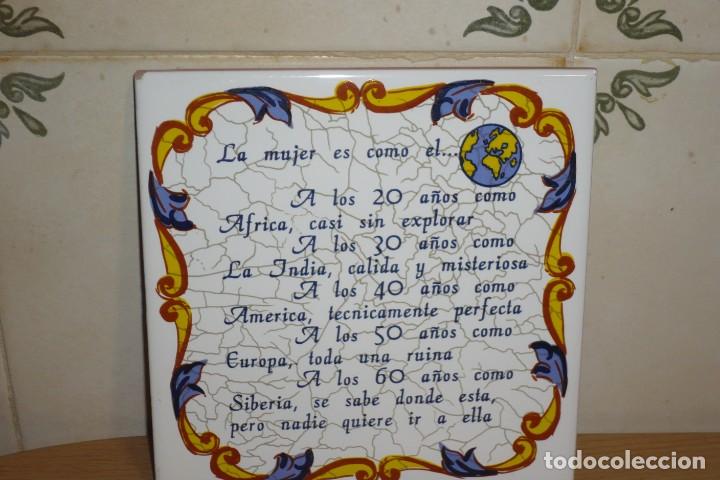 La mujer es como el...
A los 20 años como
Africa, casi sin explorar
A los 30 años como
La India, calida y misteriosa
A los 40 años como
America, tecnicamente perfecta
A los 50 años como
Europa, toda una ruina
A los 60 años como
Siberia, se sabe donde esta,
pero nadie quiere ir a ella
todocoleccion